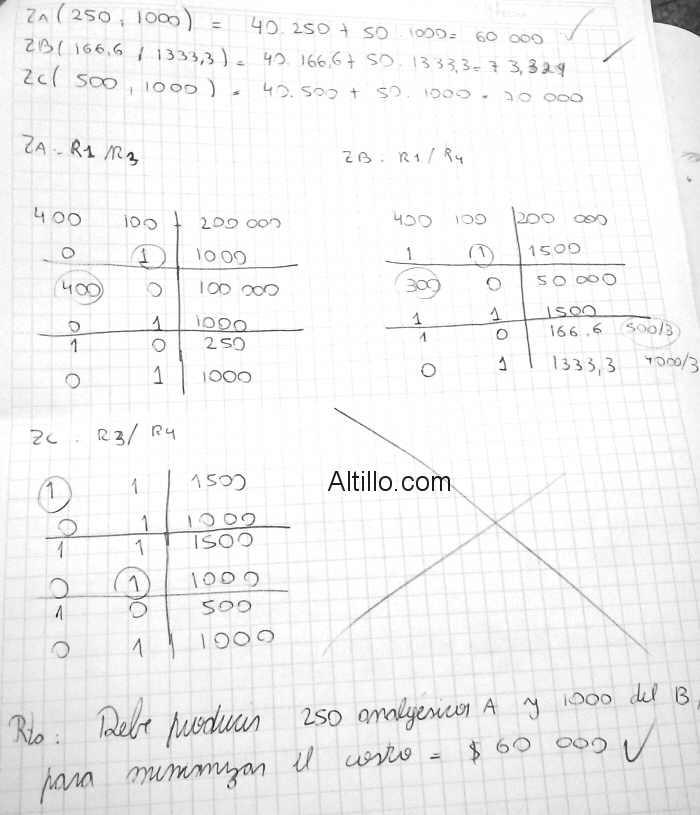 ZA (250, 1000) = 40.250 + 50.1000 = 60 000 ✓
ZB (166,6 / 1333,3) = 40.166,6 + 50.1333,3 = 73,329 ✓
ZC ( 500, 1000) = 40.500 + 50.1000 = 70 000
ZA - R1/R3
ZB. R1/R4
400 100 200 000
0 1 1000
400 0 100 000
0 1 1000
1 0 250
0 1 1000
400 100 200 000
1 1 1500
300 0 50 000
1 1 1500
1 0 166.6 500/3
0 1 1333,3 4000/3
ZC . R3/ R4
1 1 1500
0 1 1000
1 1 1500
0 1 1000
1 0 500
0 1 1000
Altillo.com
Rta: Debe producir 250 analgésicos A y 1000 del B,
para minimizar el costo = $ 60 000 ✓